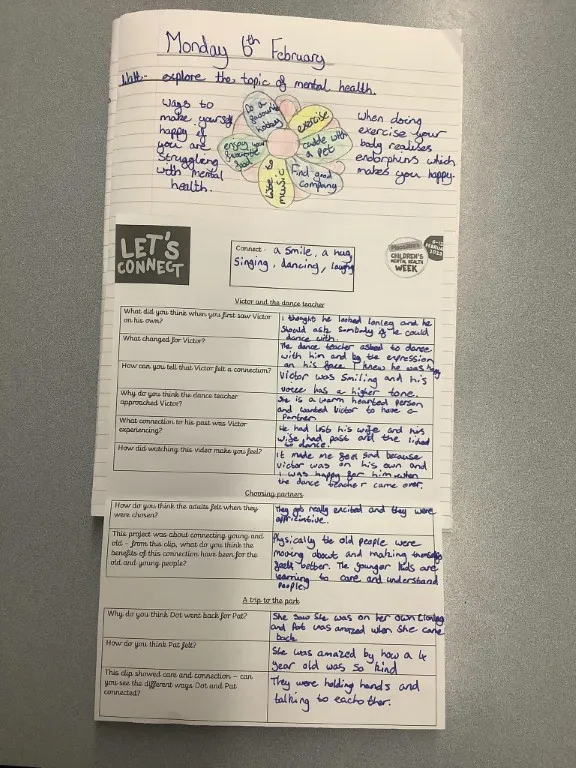 Monday 6th February
Walt:- explore the topic of mental health.
Ways to
make yourself
happy if
you are
struggling
with mental
health.
Do a
favourite
hobby
exercise
cuddle with
a pet
Find good
company
music
enjoy your
favourite
food
When doing
exercise your
body realises
endorphins which
makes you happy.
LET'S
CONNECT
Connect: a smile, a hug,
Singing, dancing, laughing
CHILDREN'S
MENTAL HEALTH
WEEK
Victor and the dance teacher
What did you think when you first saw Victor
on his own?
I thought he looked lonley and he
should ask sombody if he could
dance with.
What changed for Victor?
The dance teacher asked to dance
with him and by the expression
on his face I knew he was happy
How can you tell that Victor felt a connection?
Victor was smiling and his
voice has a higher tone.
Why do you think the dance teacher
approached Victor?
She is a warm hearted person
and wanted Victor to have a
Partner
What connection to his past was Victor
experiencing?
He had lost his wife and his
wife had past and the liked
to dance.
How did watching this video make you feel?
It made me feel sad because
Victor was on his own and
I was happy for him when
the dance teacher came over.
Choosing partners
How do you think the adults felt when they
were chosen?
They got really excited and they were
This project was about connecting young and
old – from this clip, what do you think the
benefits of this connection have been for the
old and young people?
Physically the old people were
moving about and making themselfs
feel better. The younger kids are
learning to care and understand
people
A trip to the park
Why do you think Dot went back for Pat?
She saw She was on her own (lonley)
and Pat was amazed when She came
back.
How do you think Pat felt?
She was amazed by how a 4
year old was so kind
This clip showed care and connection – can
you see the different ways Dot and Pat
connected?
They were holding hands and
talking to eachother.